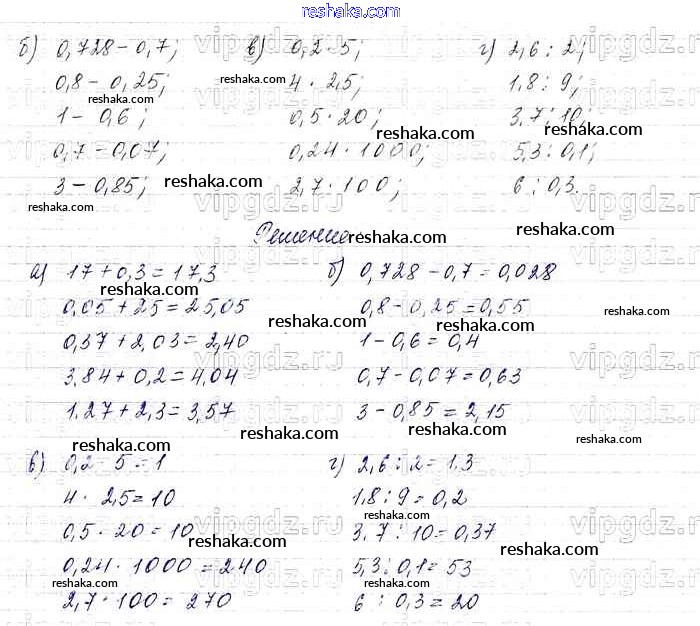 reshaka.com
б) 0,728 – 0,7; в) 0,2 · 5; г) 2,6 : 2;
0,8 – 0,25; 4 · 2,5; 1,8 : 9;
1 – 0,6; 0,5 · 20; 3,7 : 10;
0,7 – 0,07; 0,24 · 1000; 5,3 : 0,1;
3 – 0,85; 2,7 · 100; 6 : 0,3.
Решение
а) 17 + 0,3 = 17,3 б) 0,728 – 0,7 = 0,028
0,05 + 25 = 25,05 0,8 – 0,25 = 0,55
0,37 + 2,03 = 2,40 1 – 0,6 = 0,4
3,84 + 0,2 = 4,04 0,7 – 0,07 = 0,63
1,27 + 2,3 = 3,57 3 – 0,85 = 2,15
в) 0,2 · 5 = 1 г) 2,6 : 2 = 1,3
4 · 2,5 = 10 1,8 : 9 = 0,2
0,5 · 20 = 10 3,7 : 10 = 0,37
0,24 · 1000 = 240 5,3 : 0,1 = 53
2,7 · 100 = 270 6 : 0,3 = 20